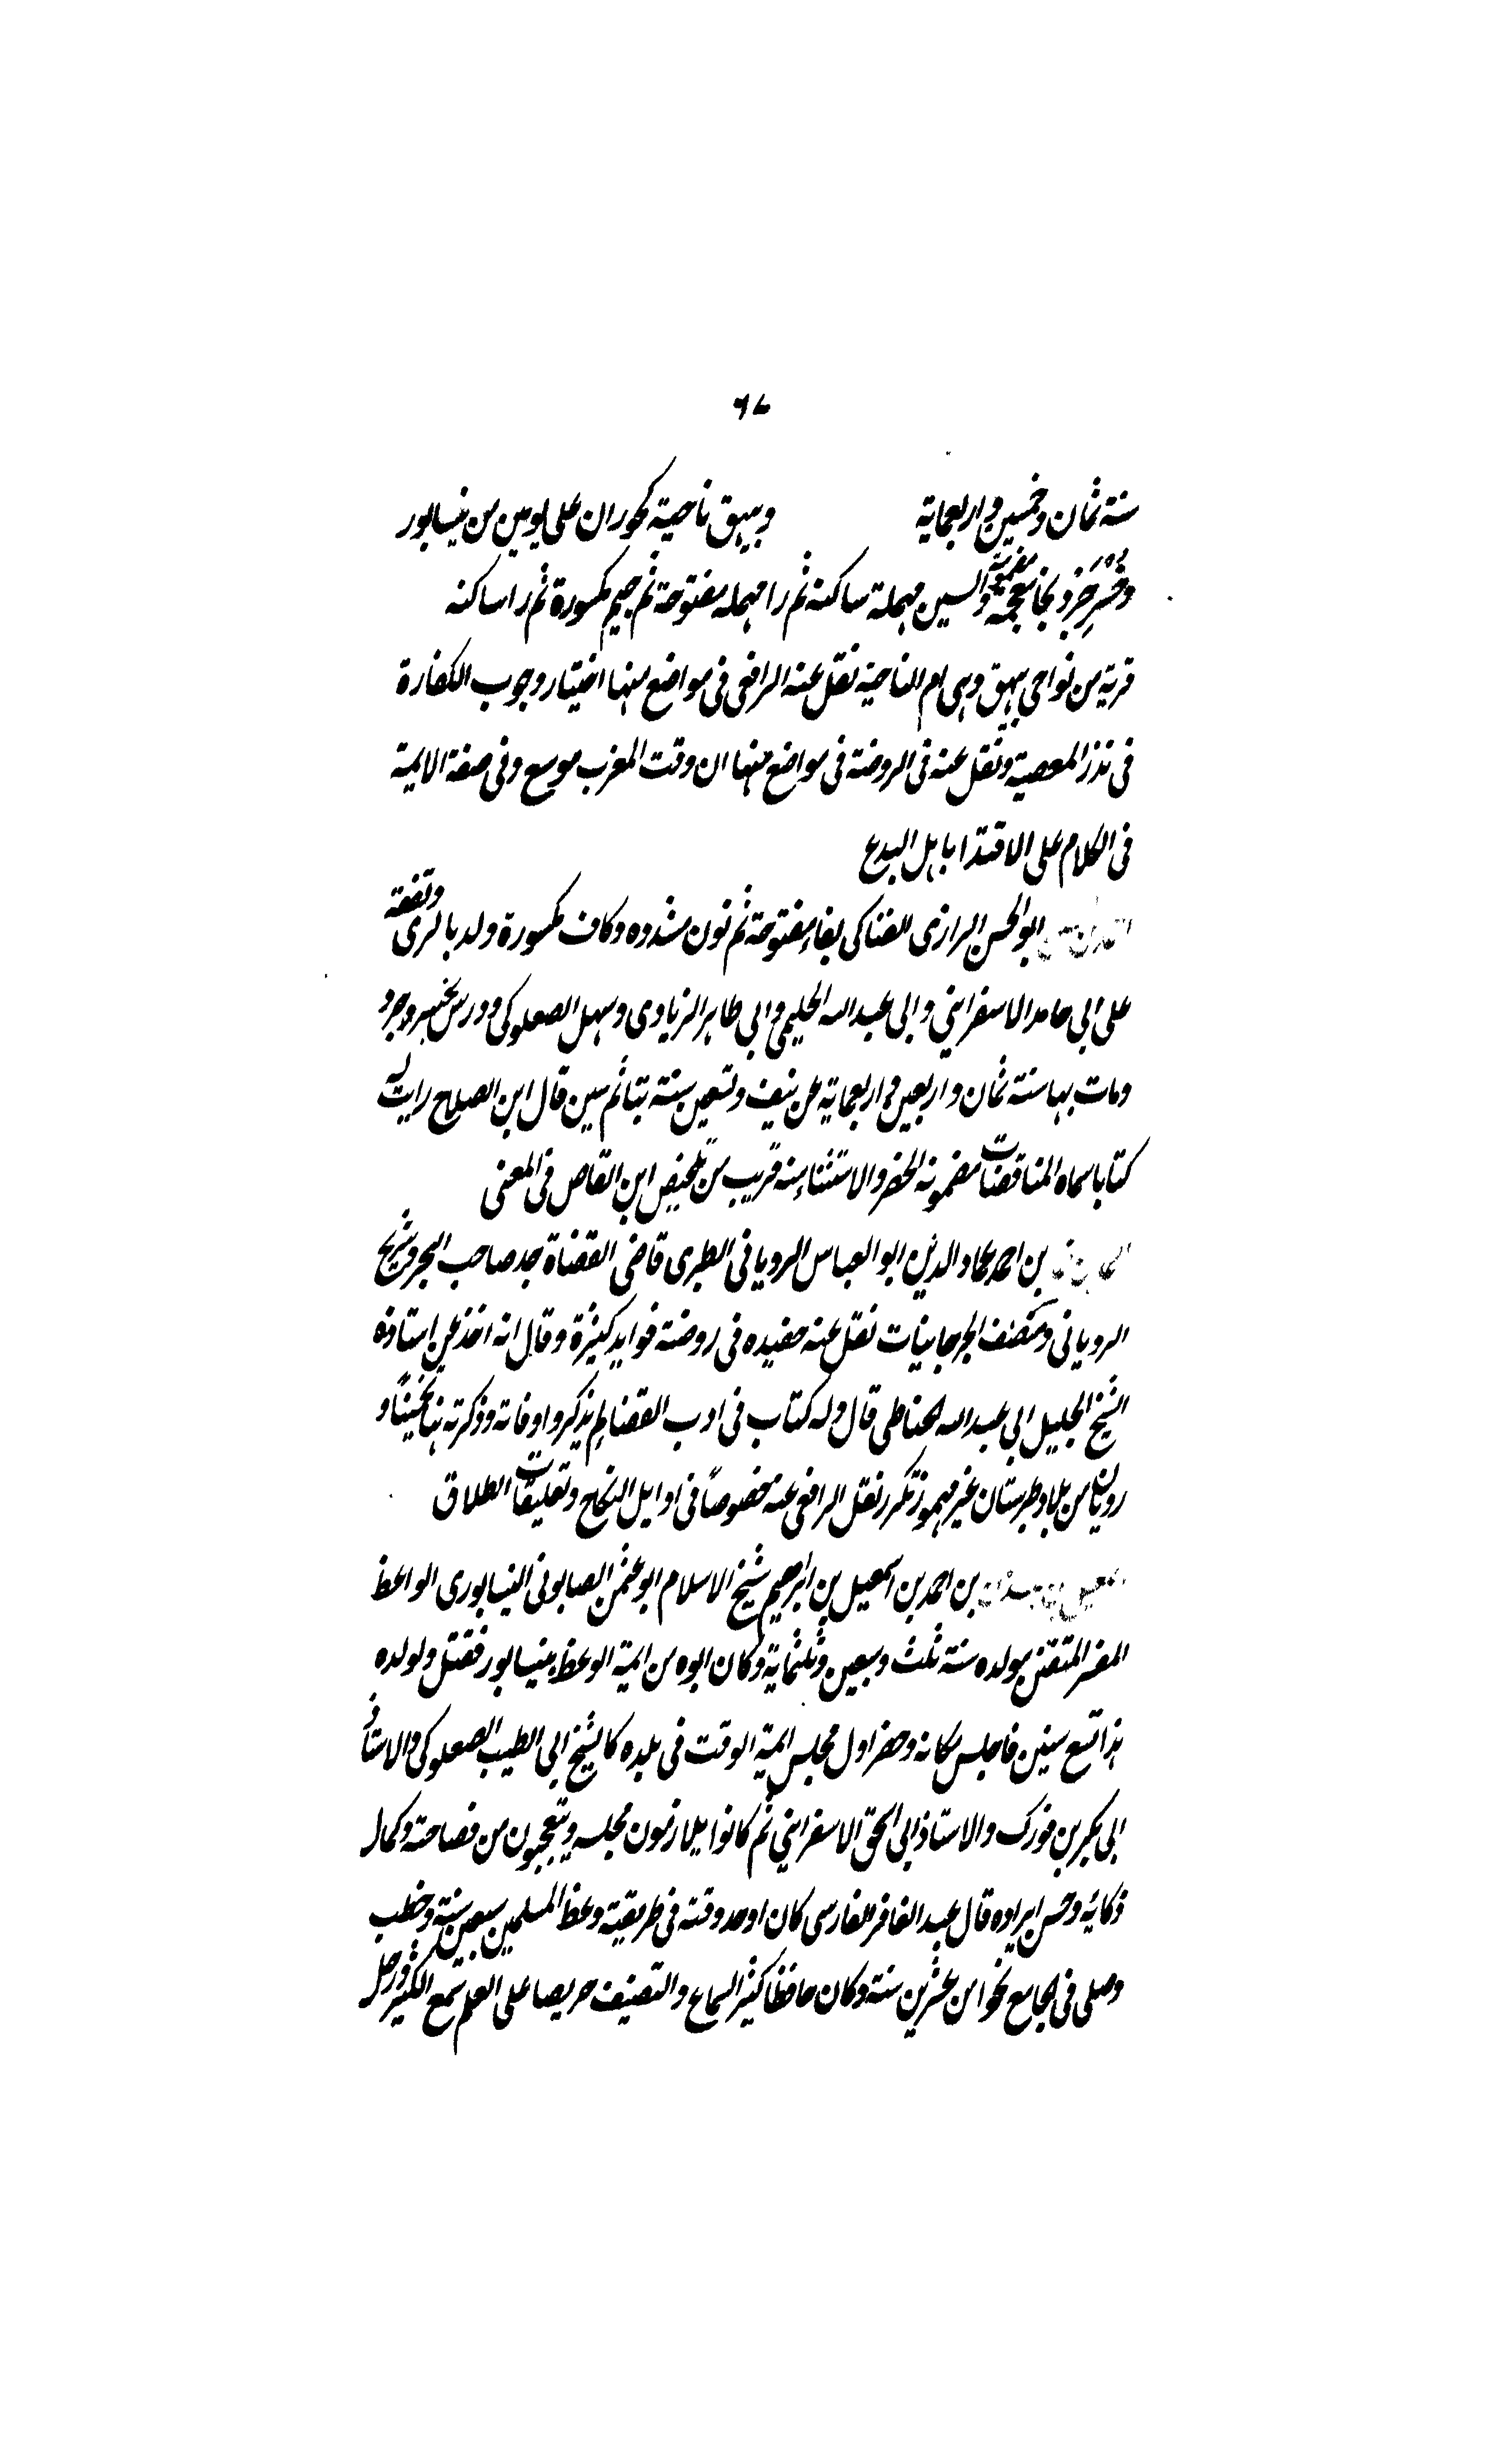 ٦٧
سنة ثمان وخمسين واربعماية وبيهق ناحية كحوران على يومين من نيسابور
وخسرجرد بخا معجمة مضمومة والسين مهملة ساكنه ثم را مهمله مفتوحة ثم جيم مكسورة ثم را ساكنه
قرية من نواحى بيهق وهى ام الناحية نقل عنه الرافعى فى مواضع منها اختيار وجوب الكفارة
فى نذر المعصية ونقل عنه فى الروضة فى مواضع منها ان وقت المغرب موسع وفى صفة الايمة
فى الكلام على الاقتدا باهل البدع
ابو الحسن الرازى الفناكى بفاء مفتوحة ثم نون مشدده وكاف مكسورة ولد بالرى وتفقه
على ابى حامد الاسفراينى وابى عبد الله الحليمى وابى طاهر الزيادى وسهل الصعلوكى ودرس بخسروجرد
ومات بها سنة ثمان واربعين واربعماية عن نيف وتسعين سنة بتا ثم سين قال ابن الصلاح رايت له
كتابا سماه المناقضات مضمونه الحصر والاستثناء منه قريب من تلخيص ابن القاص فى المعنى
بن احمد عماد الدين ابو العباس الرويانى الطبرى قاضى القضاة جد صاحب البحر وشريح
الرويانى ومصنف الجرجانيات نقل عنه حفيده فى روضة فوايد كثيرة وقال انه اخذ عن استاذه
الشيخ الجليل ابى عبد الله الحناطى قال وله كتاب فى ادب القضا لم يذكروا وفاته وذكرته هنا تخمينًا و
رويان من بلاد طبرستان غير مهموز تكرر نقل الرافعى عنه خصوصًا فى اوايل النكاح وتعليقات الطلاق
بن احمد بن اسمعيل بن ابرهيم شيخ الاسلام ابو عثمن الصابونى النيسابورى الواعظ
المفسر المتفنن مولده سنة ثلث وسبعين وثلثماية وكان ابوه من ايمة الوعظ بنيسابور فقتل ولولده
هذا تسع سنين فاجلس مكانه وحضر اول مجلس ايمة الوقت فى بلده كالشيخ ابى الطيب الصعلوكى والاستاذ
ابى بكر بن فورك والاستاذ ابى اسحق الاسفراينى ثم كانوا يلازمون مجلسه ويتعجبون من فصاحته وكمال
ذكائه وحسن ايراده قال عبد الغافر الفارسى كان اوحد وقته فى طريقته وعظ المسلمين سبعين سنة وخطب
وصلى فى الجامع نحوا من عشرين سنة وكان حافظًا كثير السماع والتصنيف حريصا على العلم سمع الكثير ورحل